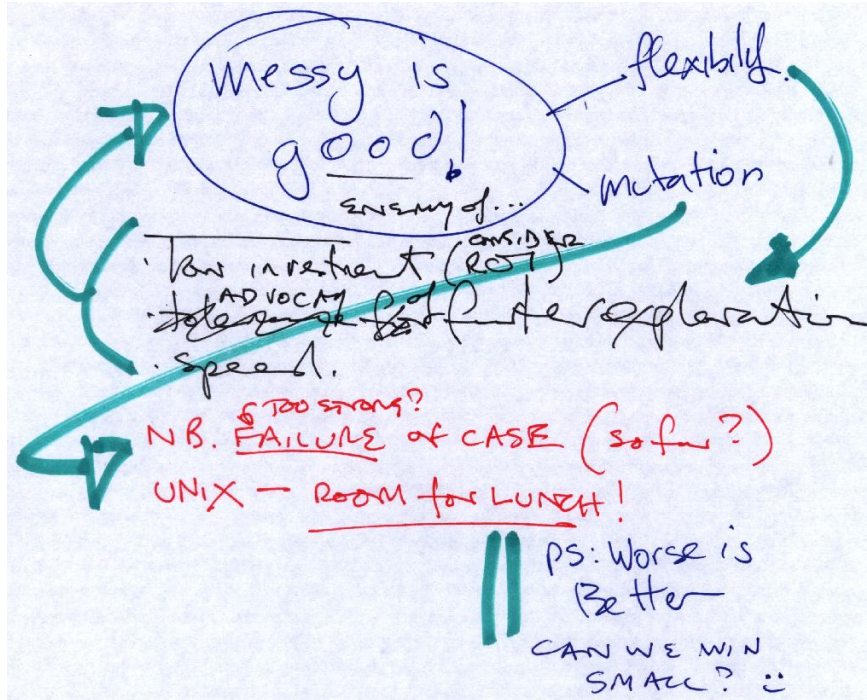 messy is
good!
flexibility
mutation
ENEMY of...
· Low investment (CONSIDER ROI)
· ADVOCACY of further exploration
· speed.
TOO STRONG?
NB. FAILURE of CASE (so far?)
UNIX - ROOM for LUNCH!
PS: Worse is
Better
CAN WE WIN
SMALL? :)